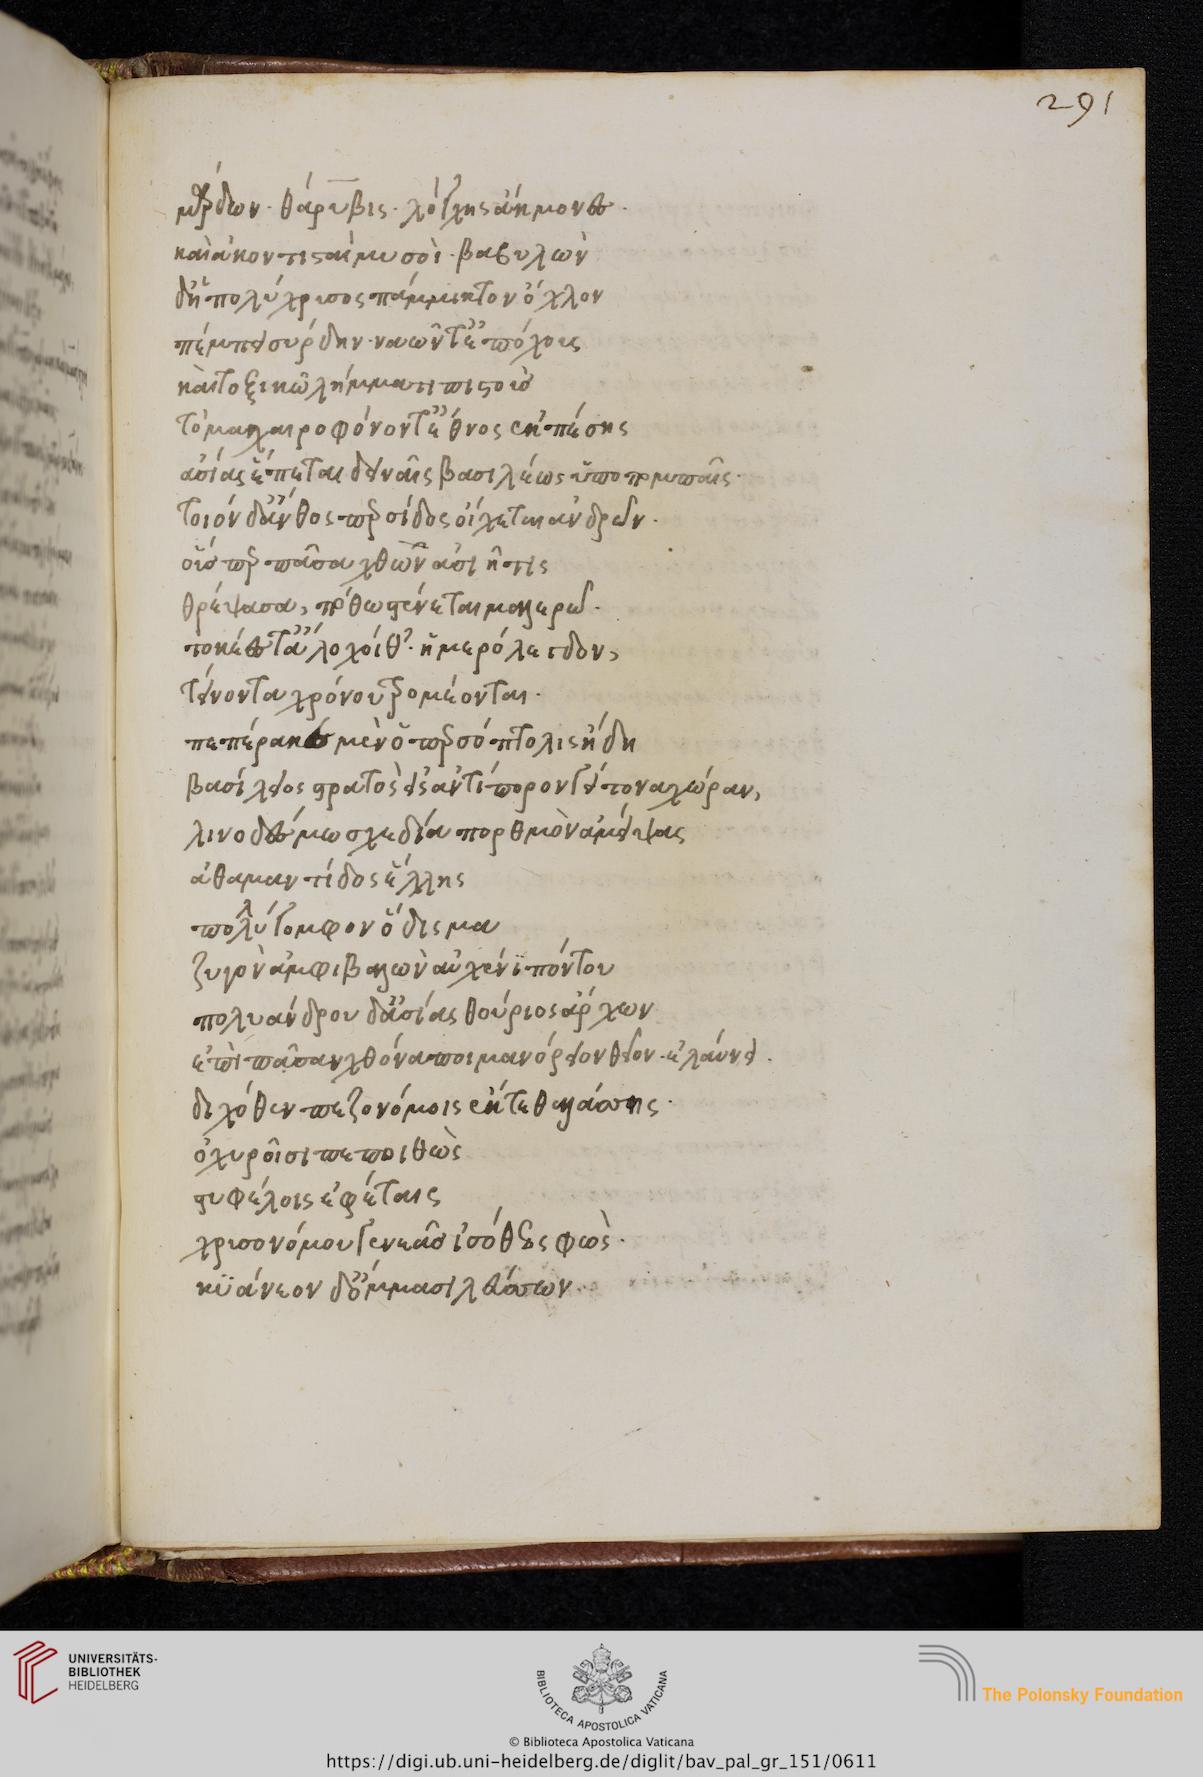 291
μάρδων· θάρυβις· λόγχης ἄκμονες·
καὶ ἀκοντισταὶ μυσοὶ· βαβυλὼν
δ' ἡ πολύχρυσος πάμμικτον ὄχλον
πέμπει σύρδην· ναῶν τ' ἐπόχους
καὶ τοξικῶ λήμματι πιστοὺς
τὸ μαχαιροφόνον τ' ἔθνος ἐκ πάσης
ἀσίας ἕπεται δειναῖς βασιλέως ὑπὸ πομπαῖς·
τοιόνδ' ἄνθος περσίδος οἴχεται ἀνδρῶν·
οὓς περ πᾶσα χθὼν ἀσιῆτις
θρέψασα, πόθω στένεται μαλερῶ·
τοκέες τ' ἄλοχοί θ'· ἡμερόλεγδον,
τείνοντα χρόνον τρομέονται·
πεπέρακεν μὲν ὁ περσόπτολις ἤδη
βασίλειος στρατὸς εἰς ἀντίπορον γείτονα χώραν,
λινοδέσμω σχεδία πορθμὸν ἀμείψας
ἀθαμαντίδος ἕλλης
πολύγομφον ὅδισμα
ζυγὸν ἀμφιβαλὼν αὐχένι πόντου
πολυάνδρου δ' ἀσίας θούριος ἄρχων
ἐπὶ πᾶσαν χθόνα ποιμανόρειον θεῖον· ἐλαύνει·
διχόθεν πεζονόμοις ἔκ τε θαλάσσης·
ὀχυροῖσι πεποιθὼς
στυφέλοις ἐφέταις
χρυσονόμου γενεᾶς ἰσόθεος φὼς·
κυάνεον δ' ὄμμασι λεύσσων
UNIVERSITÄTS-
BIBLIOTHEK
HEIDELBERG
BIBLIOTECA APOSTOLICA VATICANA
The Polonsky Foundation
© Biblioteca Apostolica Vaticana
https://digi.ub.uni-heidelberg.de/diglit/bav_pal_gr_151/0611